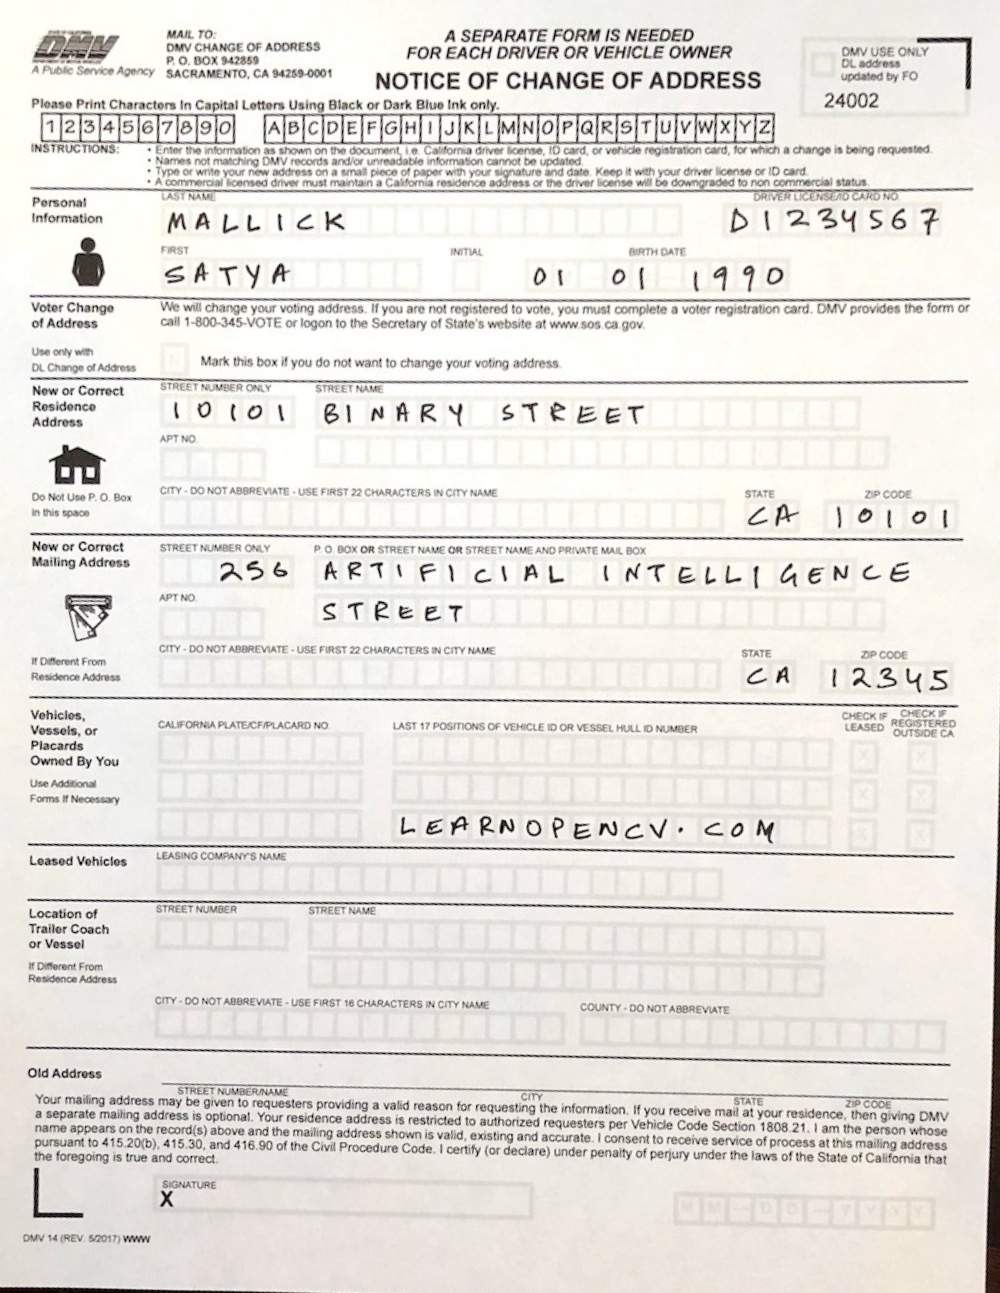 STATE OF CALIFORNIA
DMV
DEPARTMENT OF MOTOR VEHICLES
A Public Service Agency
MAIL TO:
DMV CHANGE OF ADDRESS
P. O. BOX 942859
SACRAMENTO, CA 94259-0001
A SEPARATE FORM IS NEEDED
FOR EACH DRIVER OR VEHICLE OWNER
NOTICE OF CHANGE OF ADDRESS
DMV USE ONLY
DL address
updated by FO
24002
Please Print Characters In Capital Letters Using Black or Dark Blue Ink only.
1 2 3 4 5 6 7 8 9 0 A B C D E F G H I J K L M N O P Q R S T U V W X Y Z
INSTRUCTIONS: • Enter the information as shown on the document, i.e. California driver license, ID card, or vehicle registration card, for which a change is being requested.
• Names not matching DMV records and/or unreadable information cannot be updated.
• Type or write your new address on a small piece of paper with your signature and date. Keep it with your driver license or ID card.
• A commercial licensed driver must maintain a California residence address or the driver license will be downgraded to non commercial status.
Personal
Information
LAST NAME
DRIVER LICENSE/ID CARD NO.
MALLICK
D1234567
FIRST
INITIAL
BIRTH DATE
SATYA
01 01 1990
Voter Change
of Address
We will change your voting address. If you are not registered to vote, you must complete a voter registration card. DMV provides the form or
call 1-800-345-VOTE or logon to the Secretary of State's website at www.sos.ca.gov.
Use only with
DL Change of Address
N
Mark this box if you do not want to change your voting address.
New or Correct
Residence
Address
STREET NUMBER ONLY
STREET NAME
10101
BINARY STREET
APT NO.
Do Not Use P. O. Box
in this space
CITY - DO NOT ABBREVIATE - USE FIRST 22 CHARACTERS IN CITY NAME
STATE
ZIP CODE
CA
10101
New or Correct
Mailing Address
STREET NUMBER ONLY
P. O. BOX OR STREET NAME OR STREET NAME AND PRIVATE MAIL BOX
256
ARTIFICIAL INTELLIGENCE
APT NO.
STREET
If Different From
Residence Address
CITY - DO NOT ABBREVIATE - USE FIRST 22 CHARACTERS IN CITY NAME
STATE
ZIP CODE
CA
12345
Vehicles,
Vessels, or
Placards
Owned By You
CALIFORNIA PLATE/CF/PLACARD NO.
LAST 17 POSITIONS OF VEHICLE ID OR VESSEL HULL ID NUMBER
CHECK IF
LEASED
CHECK IF
REGISTERED
OUTSIDE CA
X X
Use Additional
Forms If Necessary
X X
LEARNOPENCV.COM
X X
Leased Vehicles
LEASING COMPANY'S NAME
Location of
Trailer Coach
or Vessel
STREET NUMBER
STREET NAME
If Different From
Residence Address
CITY - DO NOT ABBREVIATE - USE FIRST 16 CHARACTERS IN CITY NAME
COUNTY - DO NOT ABBREVIATE
Old Address
STREET NUMBER/NAME
CITY
STATE
ZIP CODE
Your mailing address may be given to requesters providing a valid reason for requesting the information. If you receive mail at your residence, then giving DMV
a separate mailing address is optional. Your residence address is restricted to authorized requesters per Vehicle Code Section 1808.21. I am the person whose
name appears on the record(s) above and the mailing address shown is valid, existing and accurate. I consent to receive service of process at this mailing address
pursuant to 415.20(b), 415.30, and 416.90 of the Civil Procedure Code. I certify (or declare) under penalty of perjury under the laws of the State of California that
the foregoing is true and correct.
SIGNATURE
X
M M - D D - Y Y Y Y
DMV 14 (REV. 5/2017) WWW